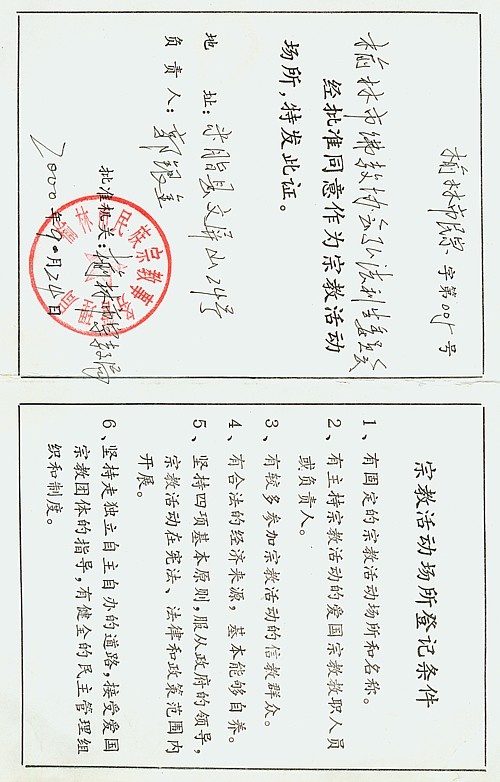 榆林市民宗 字第001号
榆林市佛教协会弘法利生委员会
经批准同意作为宗教活动
场所，特发此证。
地 址：米脂县文屏山24号
负 责 人：
批准机关：榆林市宗教局
2000年9月24日
宗教活动场所登记条件
1、有固定的宗教活动场所和名称。
2、有主持宗教活动的爱国宗教教职人员
或负责人。
3、有较多参加宗教活动的信教群众。
4、有合法的经济来源，基本能够自养。
5、坚持四项基本原则，服从政府的领导，
宗教活动在宪法、法律和政策范围内
开展。
6、坚持走独立自主自办的道路，接受爱国
宗教团体的指导，有健全的民主管理组
织和制度。